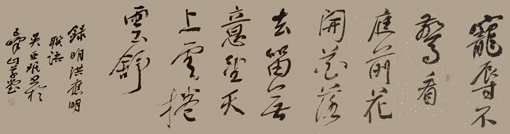 寵辱不
驚看
庭前花
開花落
去留無
意望天
上雲捲
雲舒
錄明洪應明
聯語